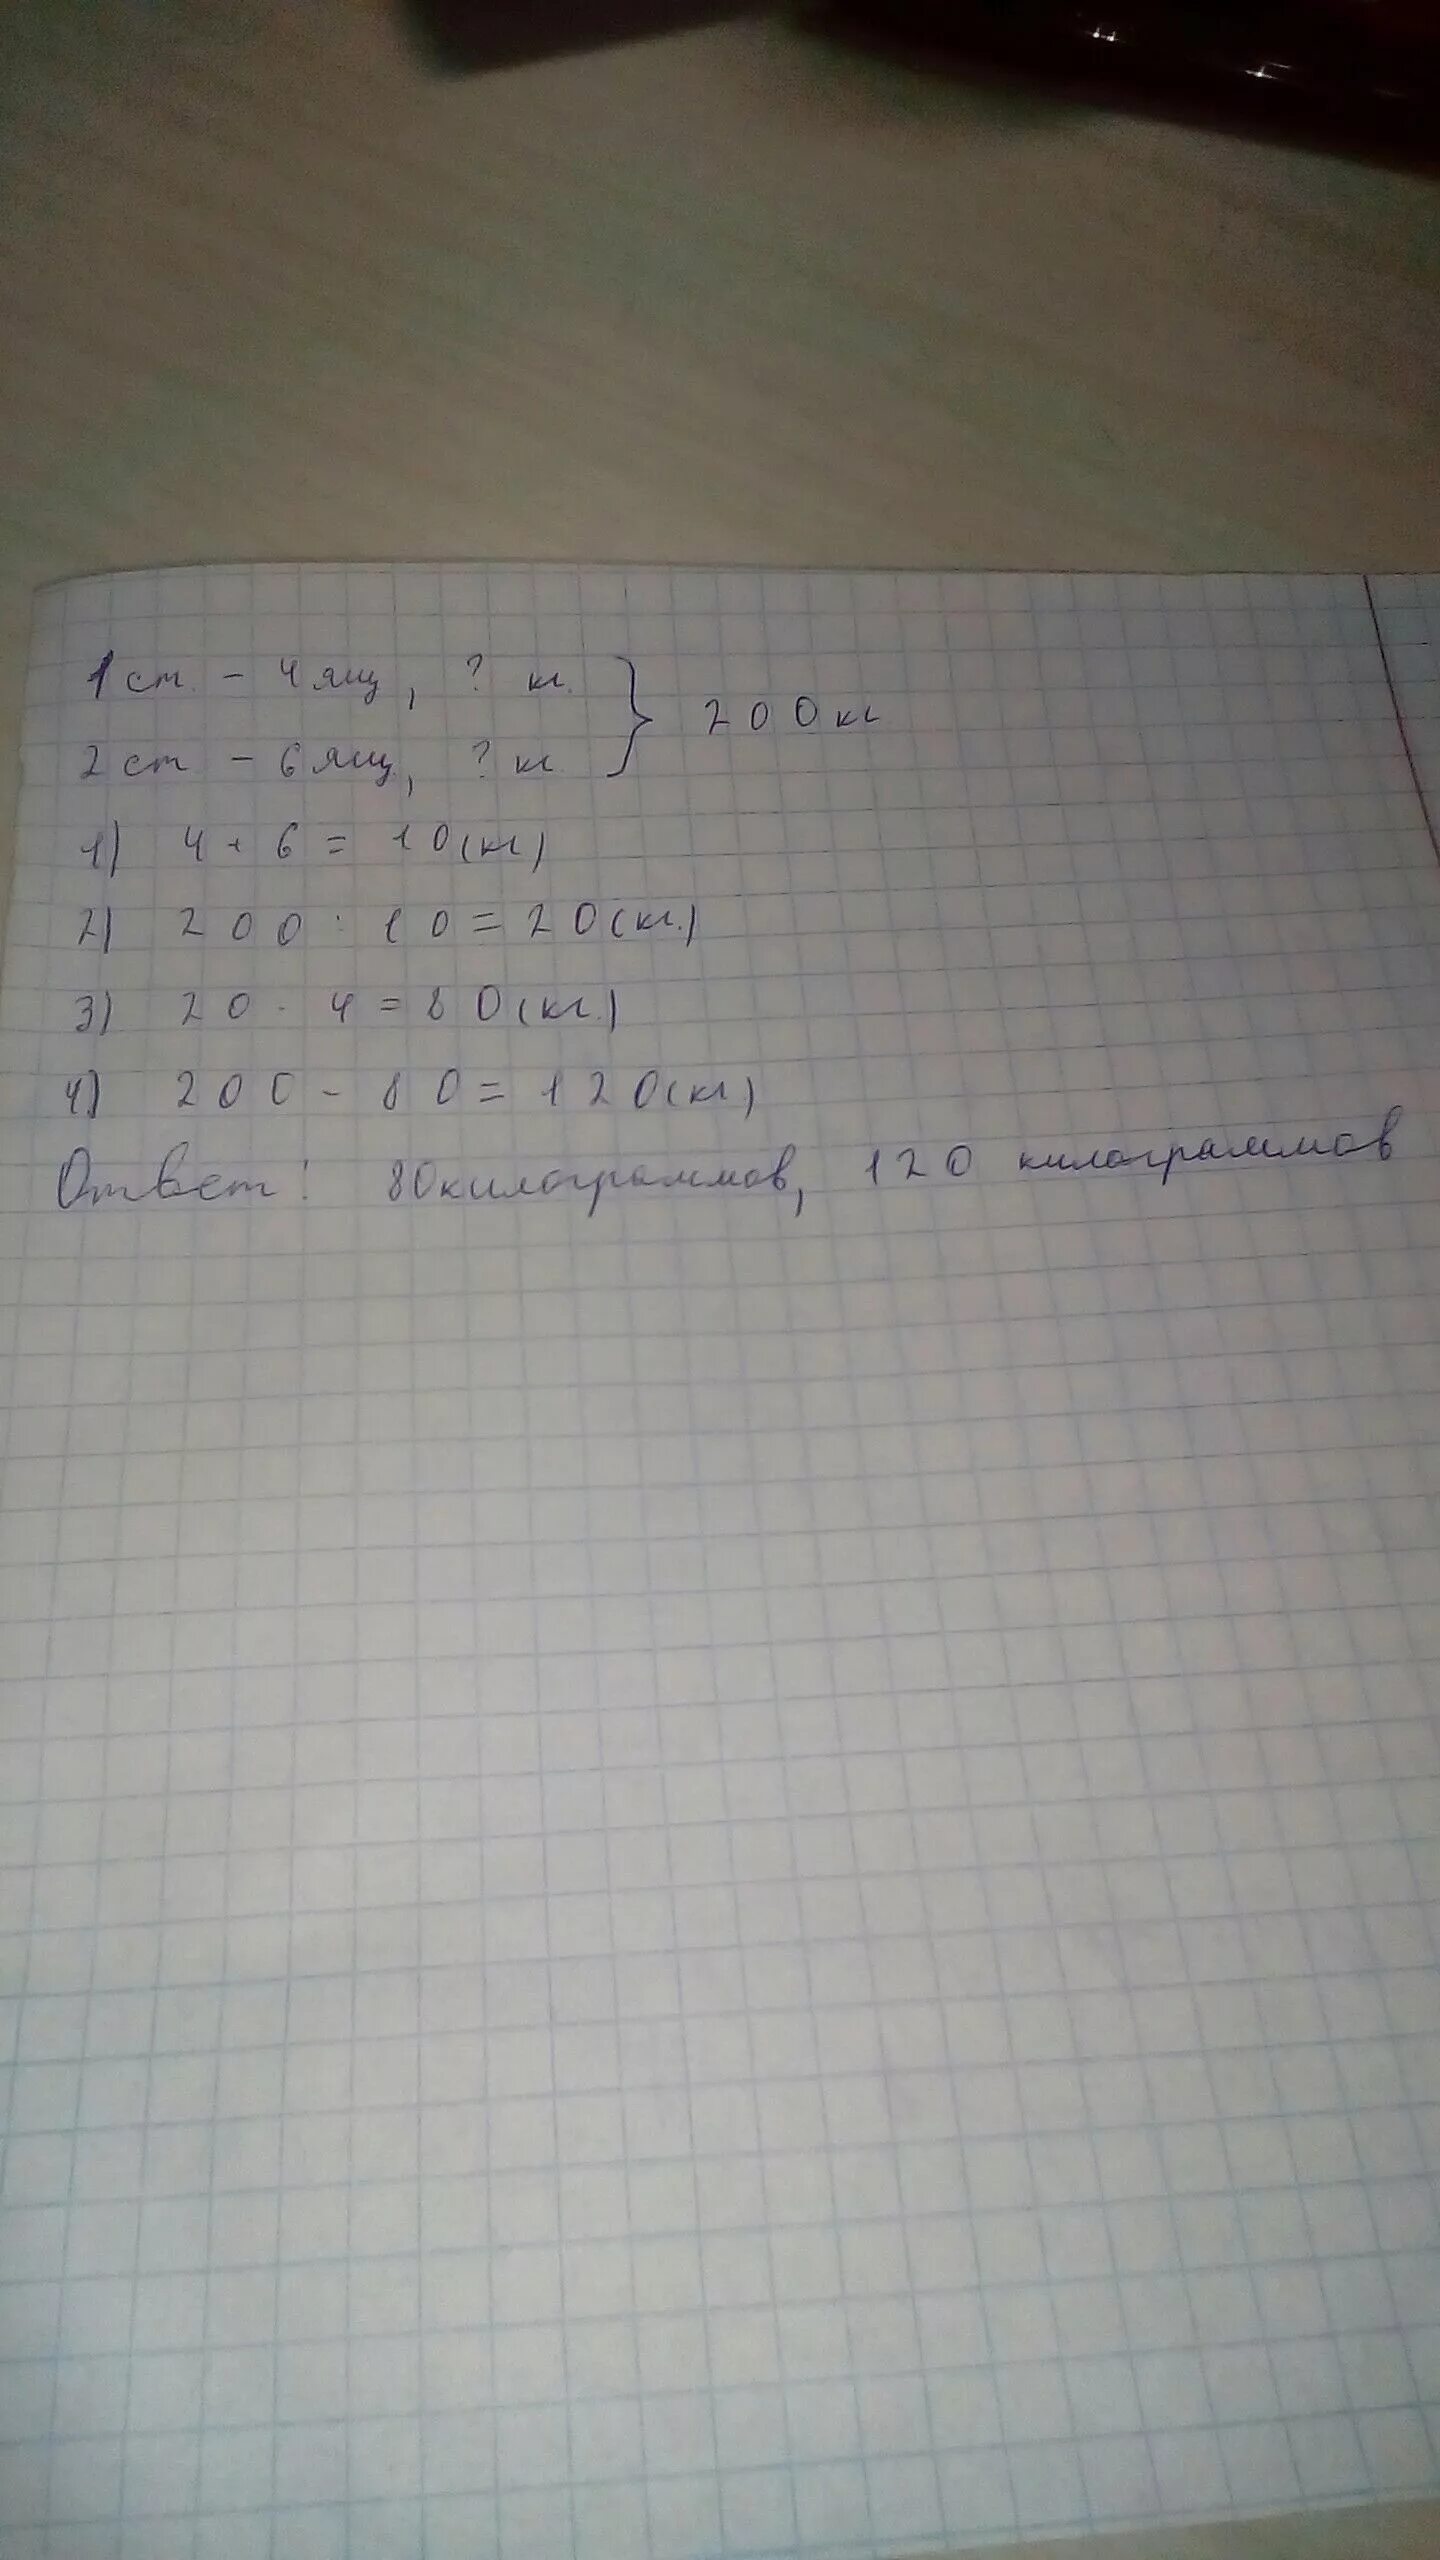 1 ст. - 4 ящ, ? кг.
2 ст - 6 ящ, ? кг } 200 кг
1) 4 + 6 = 10 (кг)
2) 200 : 10 = 20 (кг.)
3) 20 · 4 = 80 (кг.)
4) 200 - 80 = 120 (кг)
Ответ: 80 килограммов, 120 килограммов